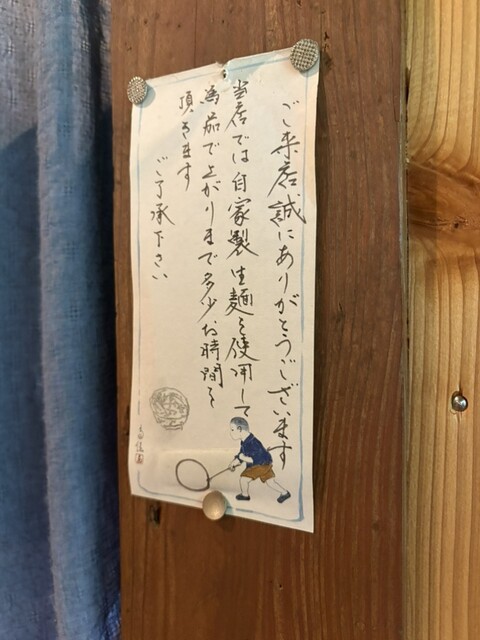 ご来店誠にありがとうございます
当店では自家製生麺を使用して
為茹で上がりまで多少お時間を
頂きます
ご了承下さい